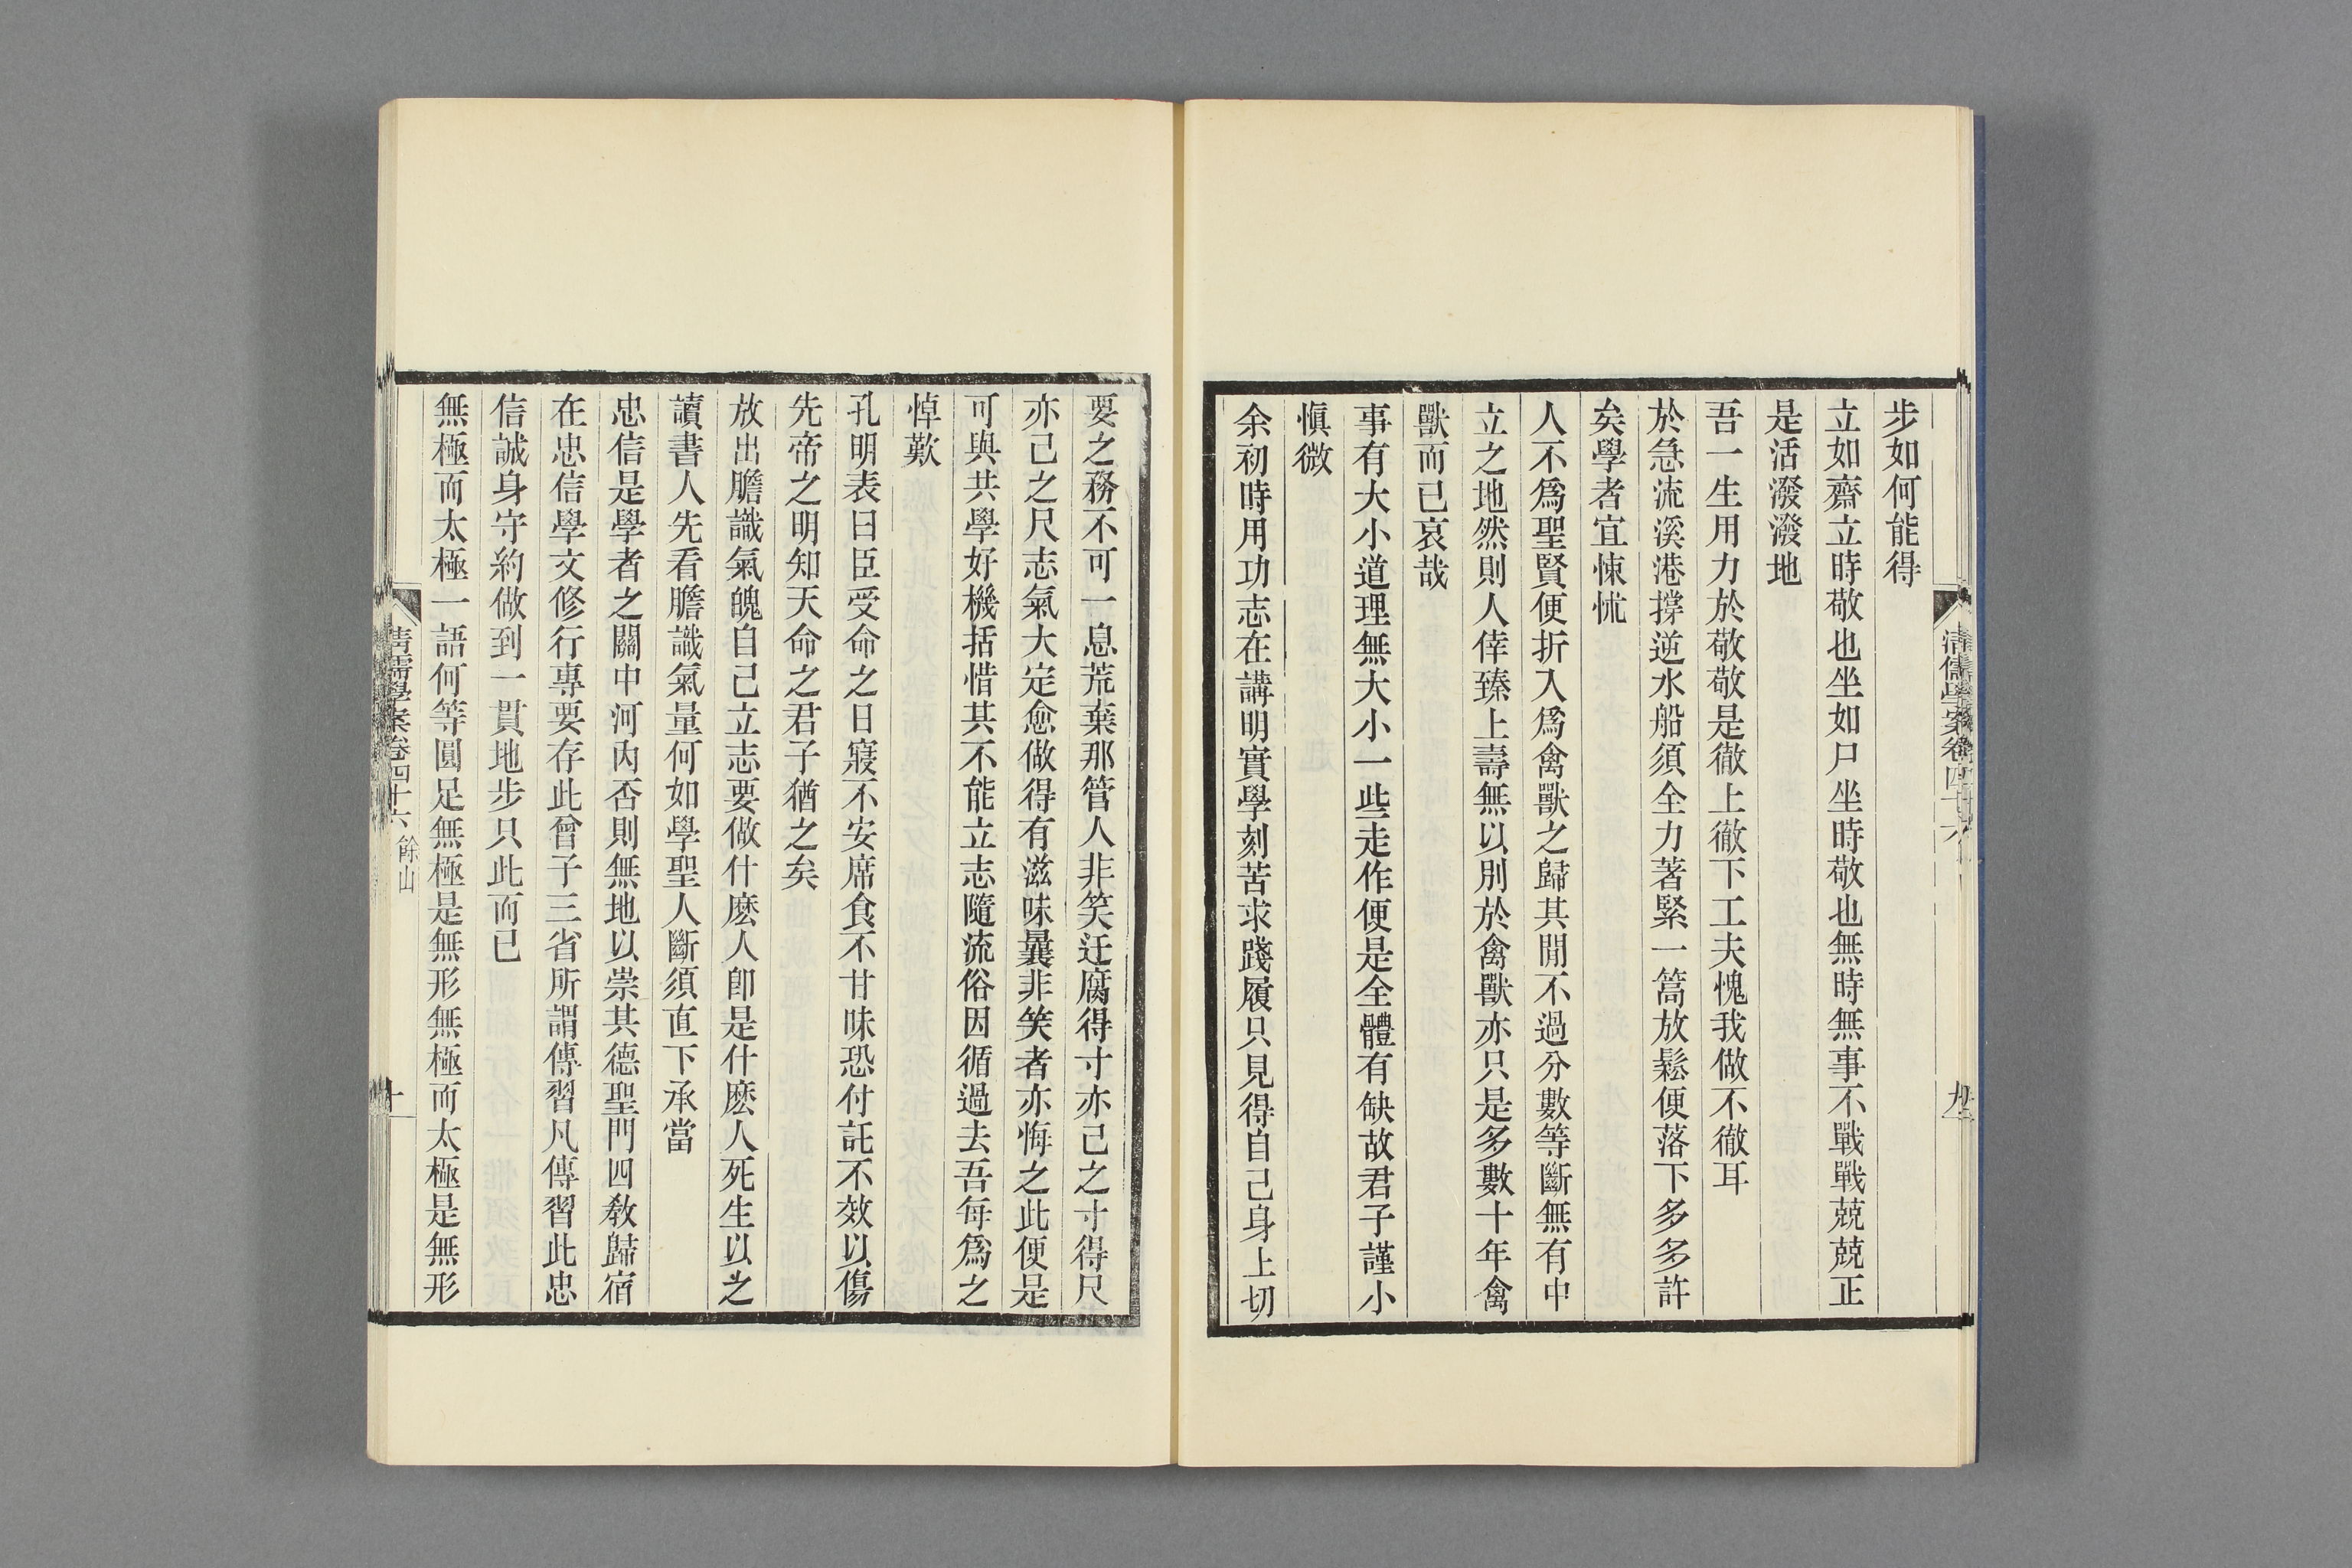 清儒學案卷四十六
九
步如何能得
立如齋立時敬也坐如尸坐時敬也無時無事不戰戰兢兢正
是活潑潑地
吾一生用力於敬敬是徹上徹下工夫愧我做不徹耳
於急流溪港撐逆水船須全力著緊一篙放鬆便落下多多許
矣學者宜悚怵
人不爲聖賢便折入爲禽獸之歸其閒不過分數等斷無有中
立之地然則人倖臻上壽無以別於禽獸亦只是多數十年禽
獸而已哀哉
事有大小道理無大小一些走作便是全體有缺故君子謹小
愼微
余初時用功志在講明實學刻苦求踐履只見得自己身上切
要之務不可一息荒棄那管人非笑迂腐得寸亦己之寸得尺
亦己之尺志氣大定愈做得有滋味曩非笑者亦悔之此便是
可與共學好機括惜其不能立志隨流俗因循過去吾每爲之
悼歎
孔明表曰臣受命之日寢不安席食不甘味恐付託不效以傷
先帝之明知天命之君子猶之矣
放出膽識氣魄自己立志要做什麽人卽是什麽人死生以之
讀書人先看膽識氣量何如學聖人斷須直下承當
忠信是學者之關中河內否則無地以崇其德聖門四敎歸宿
在忠信學文修行專要存此曾子三省所謂傳習凡傳習此忠
信誠身守約做到一貫地步只此而已
無極而太極一語何等圓足無極是無形無極而太極是無形
清儒學案卷四十六 餘山
十